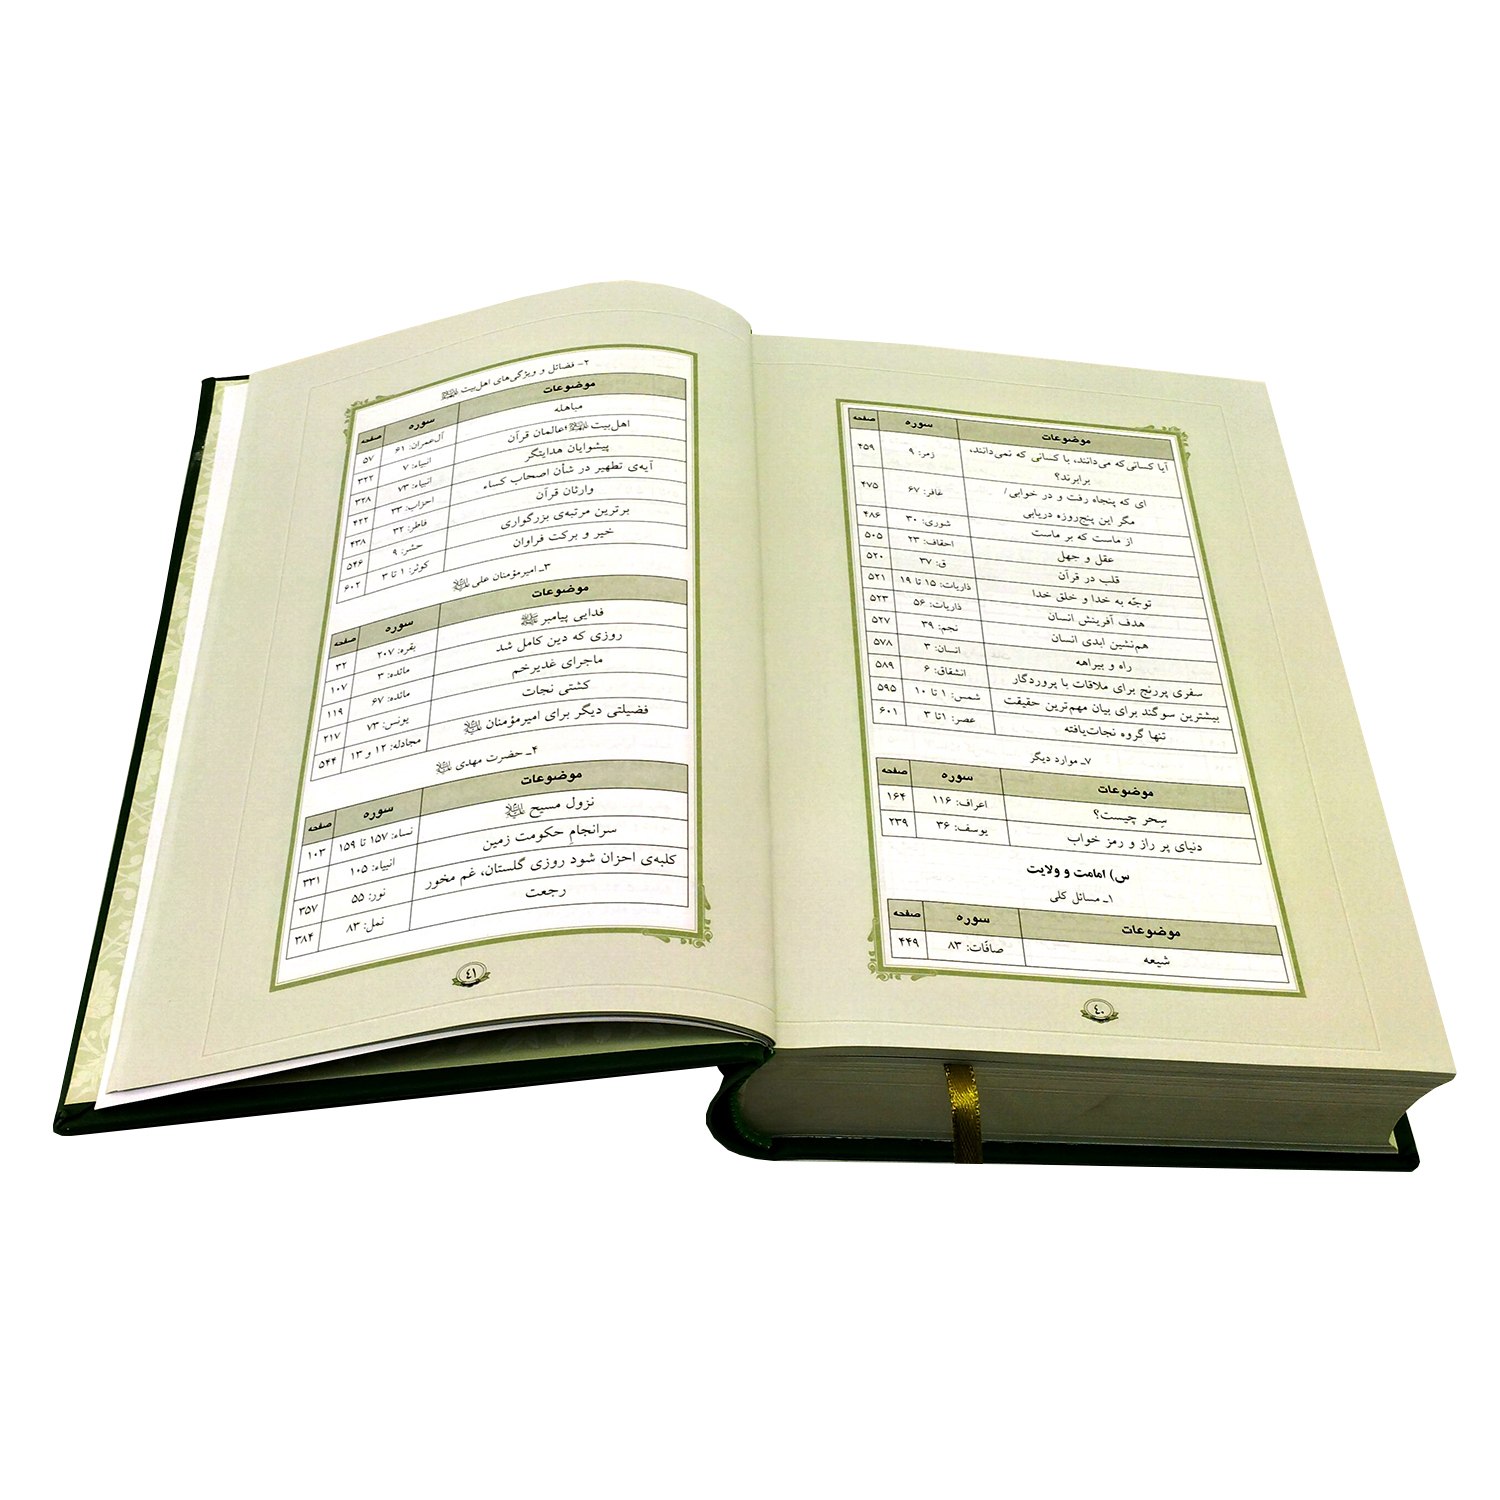 موضوعات سوره صفحه
آیا کسانی‌که می‌دانند، با کسانی که نمی‌دانند، زمر: ۹ ۴۵۹
برابرند؟
ای که پنجاه رفت و در خوابی/ غافر: ۶۷ ۴۷۵
مگر این پنج‌روزه دریابی
از ماست که بر ماست شوری: ۳۰ ۴۸۶
عقل و جهل احقاف: ۲۳ ۵۰۵
قلب در قرآن ق: ۳۷ ۵۲۰
توجّه به خدا و خلق خدا ذاریات: ۱۵ تا ۱۹ ۵۲۱
هدف آفرینش انسان ذاریات: ۵۶ ۵۲۳
هم‌نشین ابدی انسان نجم: ۳۹ ۵۲۷
راه و بیراهه انسان: ۳ ۵۷۸
سفری پررنج برای ملاقات با پروردگار انشقاق: ۶ ۵۸۹
بیشترین سوگند برای بیان مهم‌ترین حقیقت شمس: ۱ تا ۱۰ ۵۹۵
تنها گروه نجات‌یافته عصر: ۱تا ۳ ۶۰۱
۷ـ موارد دیگر
موضوعات سوره صفحه
سِحر چیست؟ اعراف: ۱۱۶ ۱۶۴
دنیای پر راز و رمز خواب یوسف: ۳۶ ۲۳۹
س) امامت و ولایت
۱ـ مسائل کلی
موضوعات سوره صفحه
شیعه صافّات: ۸۳ ۴۴۹
٤٠
۲- فضائل و ویژگی‌های اهل‌بیت
موضوعات سوره صفحه
مباهله آل‌عمران: ۶۱ ۵۷
اهل‌بیت عالمان قرآن انبیاء: ۷ ۳۲۲
پیشوایان هدایتگر انبیاء: ۷۳ ۳۲۸
آیه‌ی تطهیر در شأن اصحاب کساء احزاب: ۳۳ ۴۲۲
وارثان قرآن فاطر: ۳۲ ۴۳۸
برترین مرتبه‌ی بزرگواری حشر: ۹ ۵۴۶
خیر و برکت فراوان کوثر: ۱ تا ۳ ۶۰۲
۳ـ امیرمؤمنان علی
موضوعات سوره صفحه
فدایی پیامبر بقره: ۲۰۷ ۳۲
روزی که دین کامل شد مائده: ۳ ۱۰۷
ماجرای غدیرخم مائده: ۶۷ ۱۱۹
کشتی نجات یونس: ۷۳ ۲۱۷
فضیلتی دیگر برای امیرمؤمنان مجادله: ۱۲ و ۱۳ ۵۴۴
۴ـ حضرت مهدی
موضوعات سوره صفحه
نزول مسیح نساء: ۱۵۷ تا ۱۵۹ ۱۰۳
سرانجامِ حکومت زمین انبیاء: ۱۰۵ ۳۳۱
کلبه‌ی احزان شود روزی گلستان، غم مخور نور: ۵۵ ۳۵۷
رجعت نمل: ۸۳ ۳۸۴
٤١